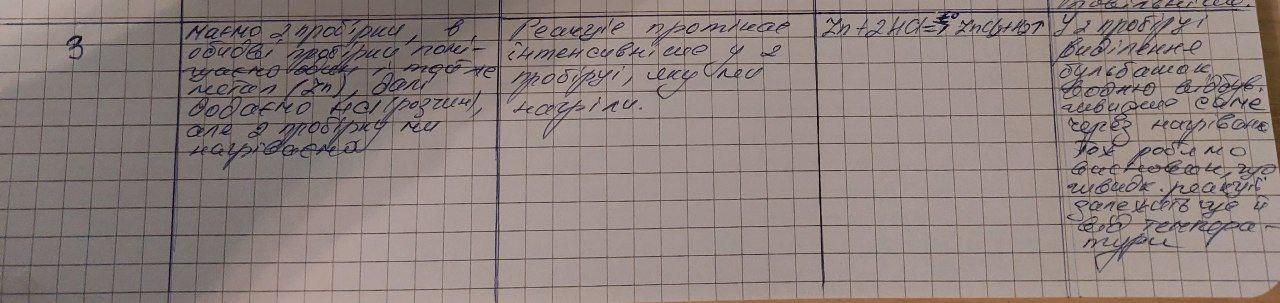 3
маємо 2 пробірки, в
обидві пробірки помі-
щаємо один і той же
метал (Zn), далі
додаємо HCl (розчин),
але 2 пробірку ми
нагріваємо
Реакція протікає
інтенсивніше у 2
пробірці, яку ми
нагріли.
Zn+2HCl=ZnCl₂+H₂↑
У 2 пробірці
виділення
бульбашок
водню відбув.
швидше саме
через нагрівання
тож робимо
висновок, що
швидк. реакції
залежить ще й
від темпера-
тури